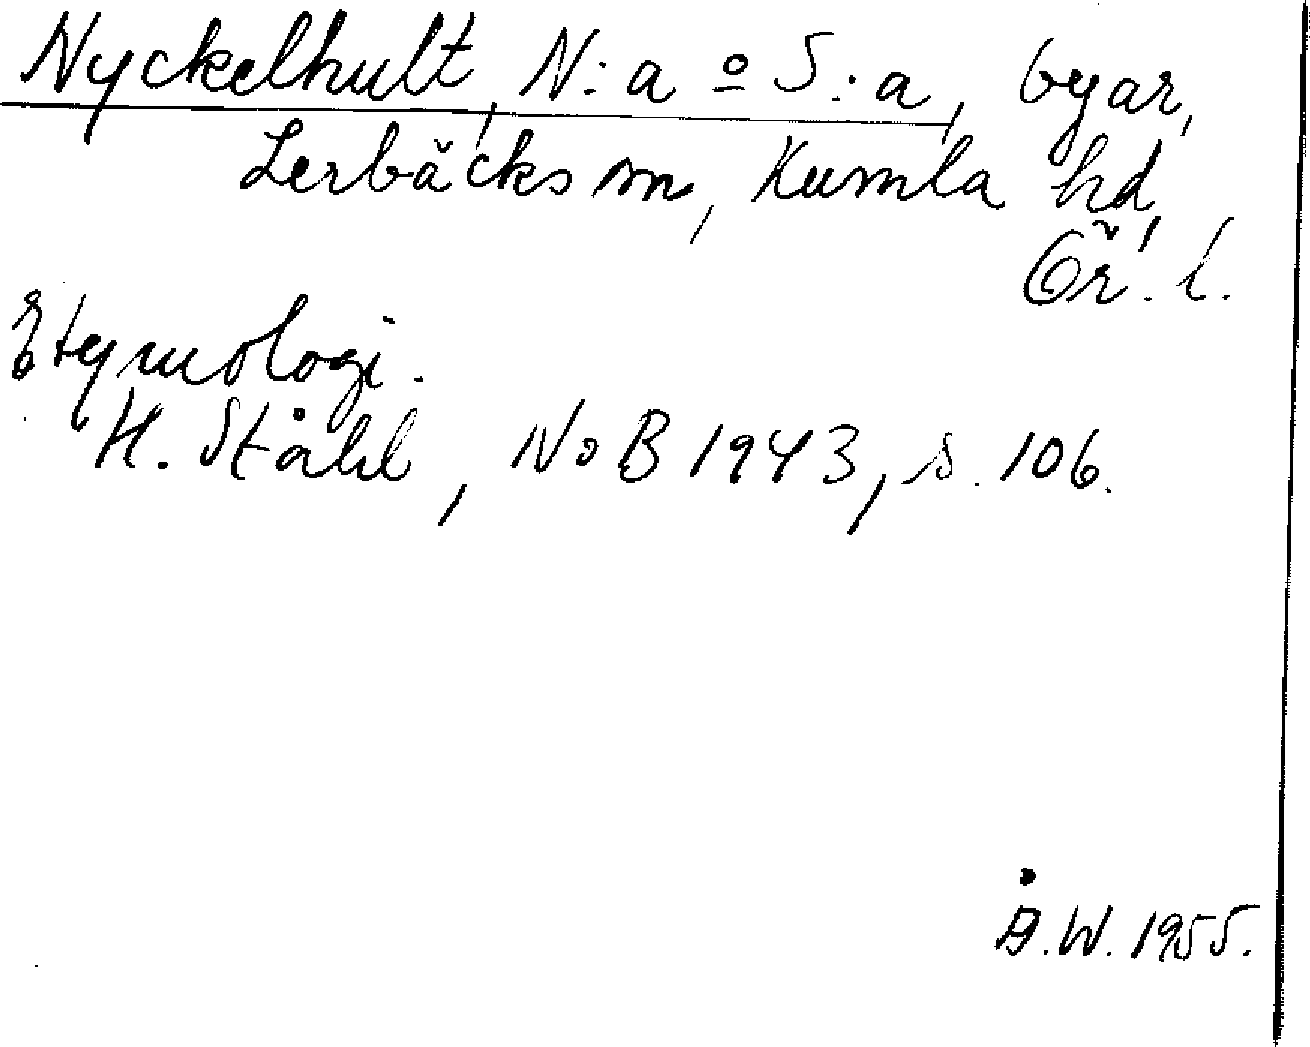 Nyckelhult, N:a o S:a, byar,
Lerbäcks sn, Kumla hd,
Ör. l.
Etymologi.
H. Ståhl, NoB 1943, s. 106.
Å.W. 1955.